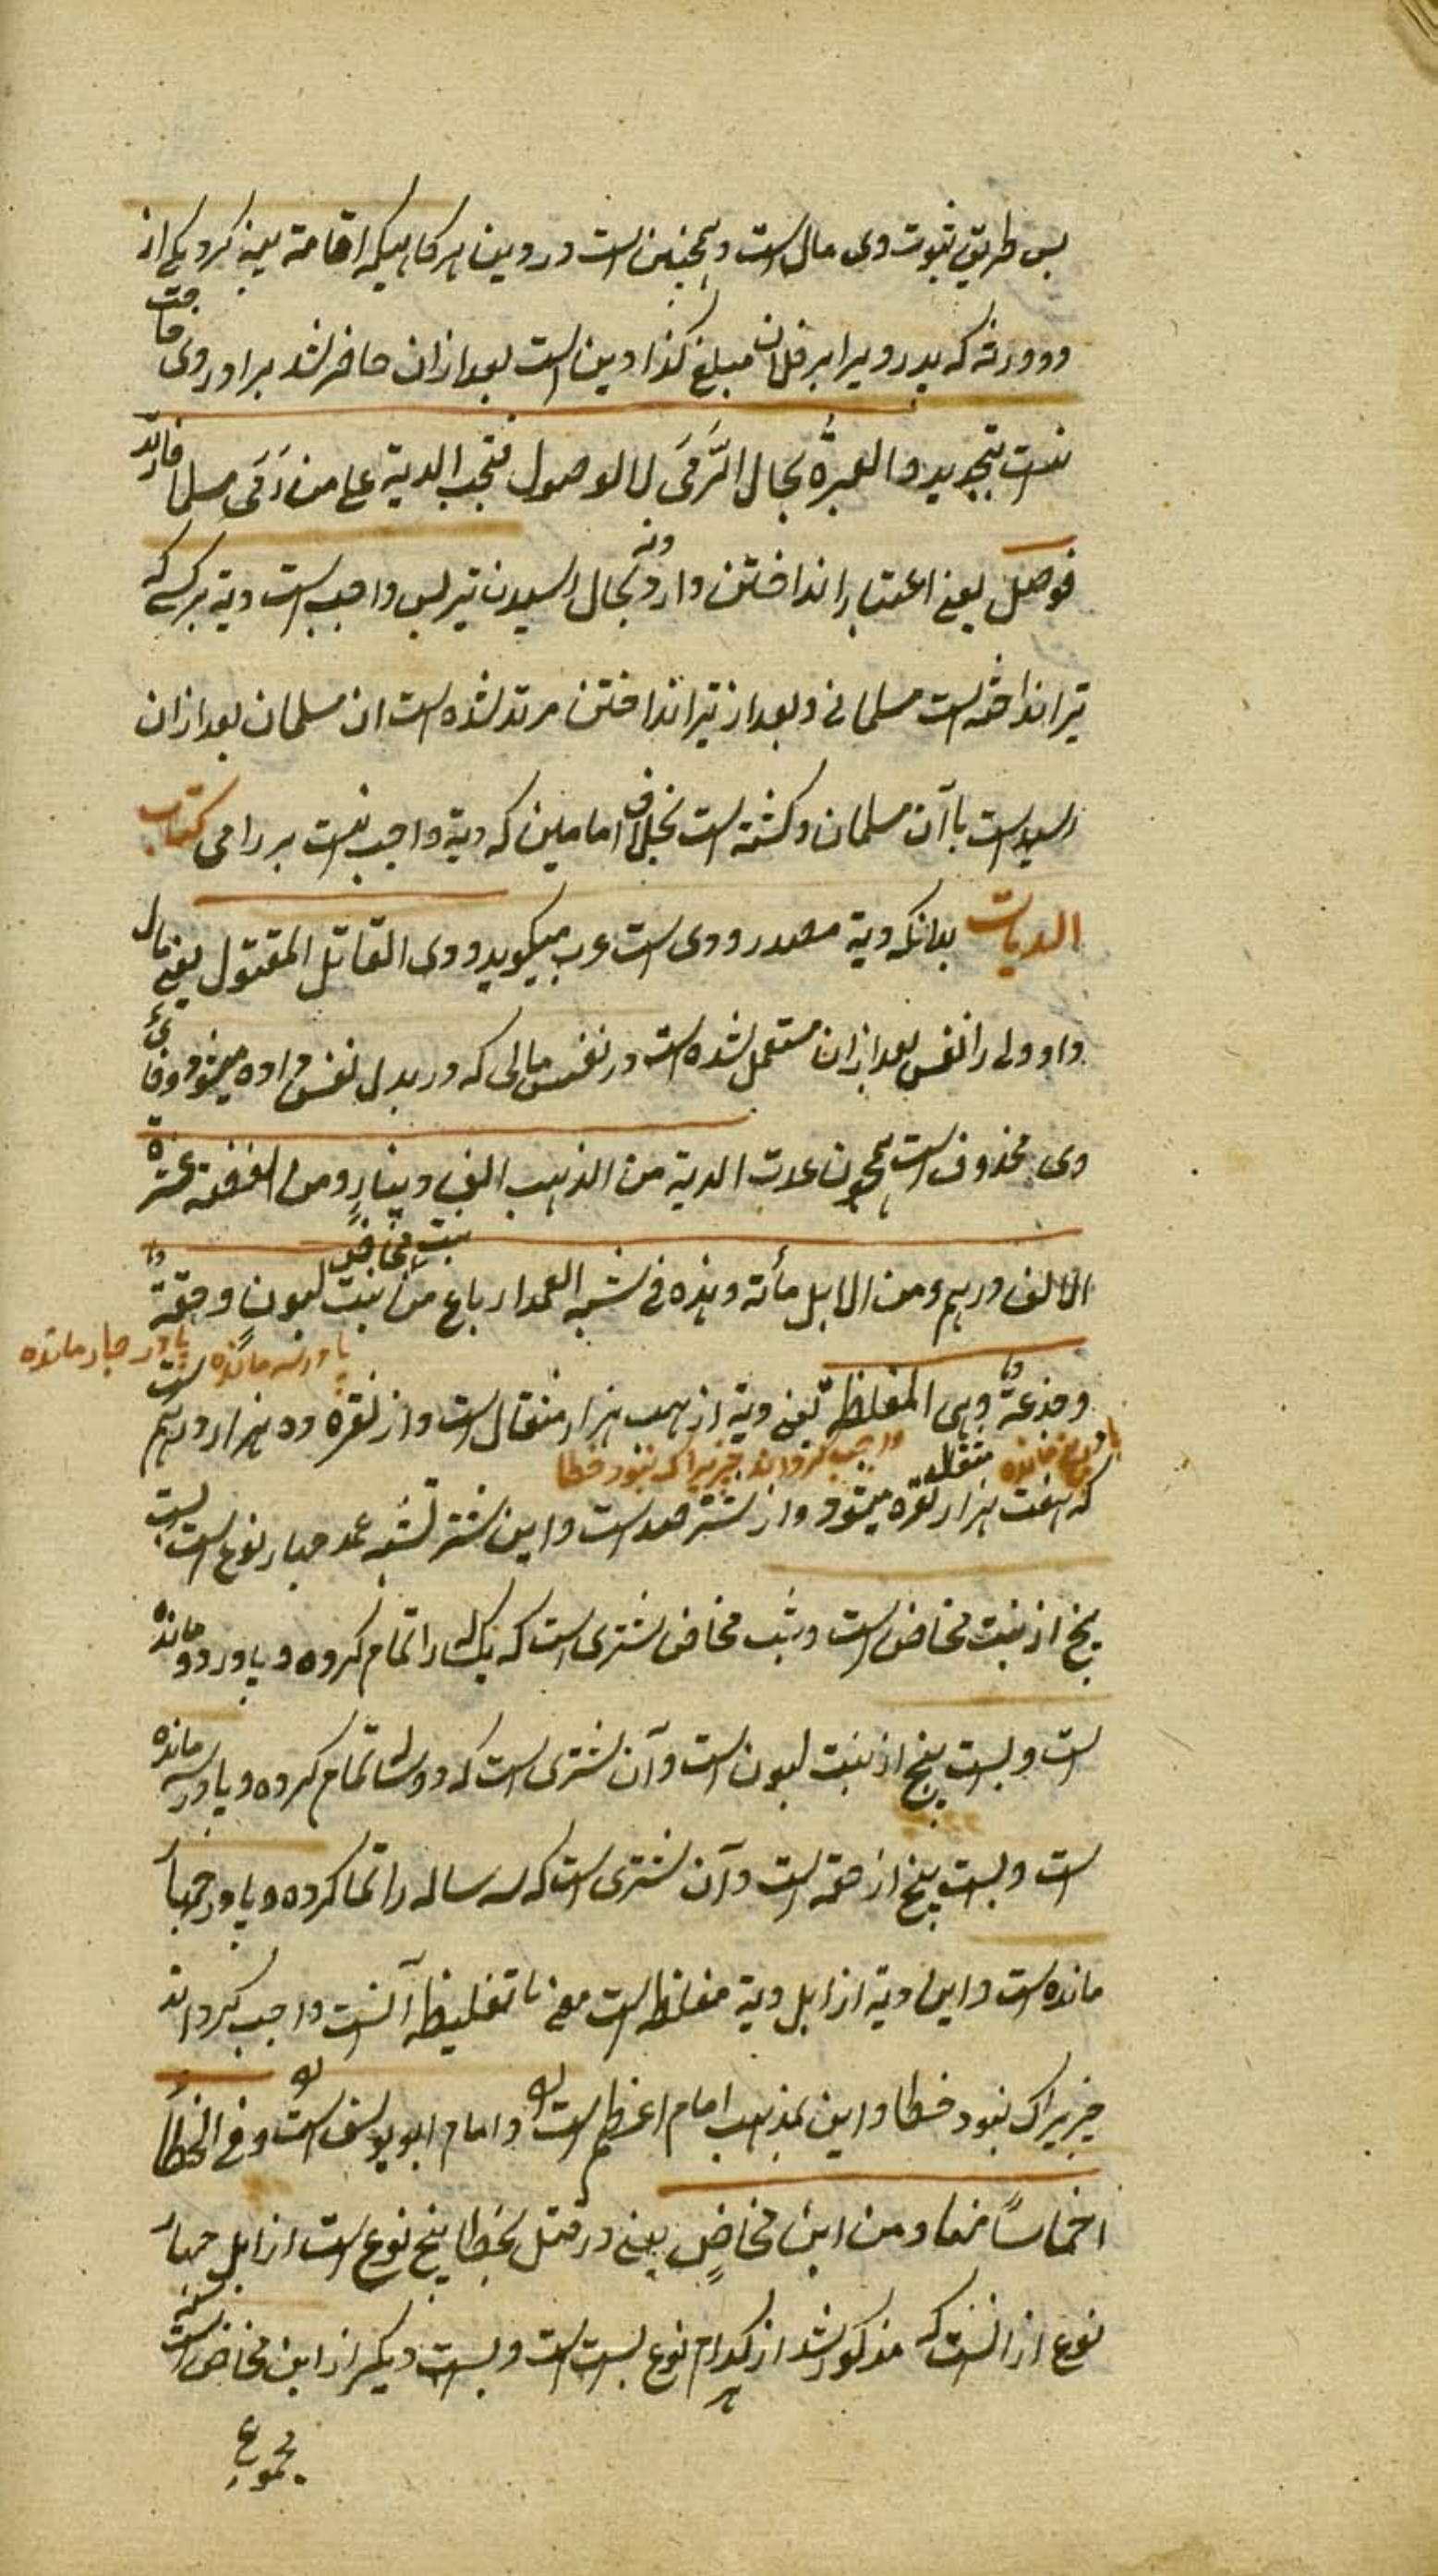 پس طریق ثبوت وی مال است و همچنین است در دین هر گاهیکه اقامة بینه کرد یکی از
دو ورثه که پدر ویرا بر فلان مبلغ کذا دین است بعد ازان حاضر شد برادر وی حاجت
نیست بتجدید والعبرة بحال الرمی لا الوصول فتجب الدیة علی من رمی مسلما فارتد
فوصل یعنی اعتبار انداختن دارد نه بحال رسیدن تیر پس واجب است دیة بر کسی که
تیر انداخته است مسلمانی و بعد از تیر انداختن مرتد شده است ان مسلمان بعد ازان
رسیده است باآن مسلمان و کشته است بخلاف امامین که دیة واجب نیست بر رامی کتاب
الدیات بدانکه دیة مصدر ودی است عرب میگوید ودی القاتل المقتول یعنی مال
داد ولی را نفس بعد ازان مستعمل شده است در نفس مالی که در بدل نفس داده میشود و فای
وی محذوف است همچون عدت الدیة من الذهب الف دینار ومن الفضة عشرة
الالف درهم ومن الابل مأته وهذه فی شبه العمد ارباع من بنت مخاض بنت لبون وحقة
پا در سه مانده پا در چهار مانده
وجذعة وهی المغلظة یعنی دیة از ذهب هزار مثقال است و از نقره ده هزار درهم است
واجب گردانید چیزیراکه نبود خطا
که هفت هزار مثقال نقره میشود و از شتر صد است و این شتر بشبه عمد چهار نوع است بیست
پنج از بنت مخاض است و بنت مخاض شتری است که یکسال را تمام کرده و پا در دو مانده
است و بیست پنج از بنت لبون است و آن شتری است که دو سال تمام کرده و پا در سه مانده
است و بیست پنج از حقه است و آن شتری است که سه ساله را تمام کرده و پا در چهار
مانده است و این دیة از ابل دیة مغلظه است معنی تغلیظه آنست واجب گرداند
چیزیراکه نبود خطا و این بمذهب امام اعظم است و امام ابو یوسف است وفی الخطأ
اخماسا منها ومن ابن مخاض یعنی در قتل بخطا پنج نوع است از ابل چهار
نوع از انست که مذکور شد از هر کدام نوع بیست است و بیست دیگر از ابن مخاض است
مجموع